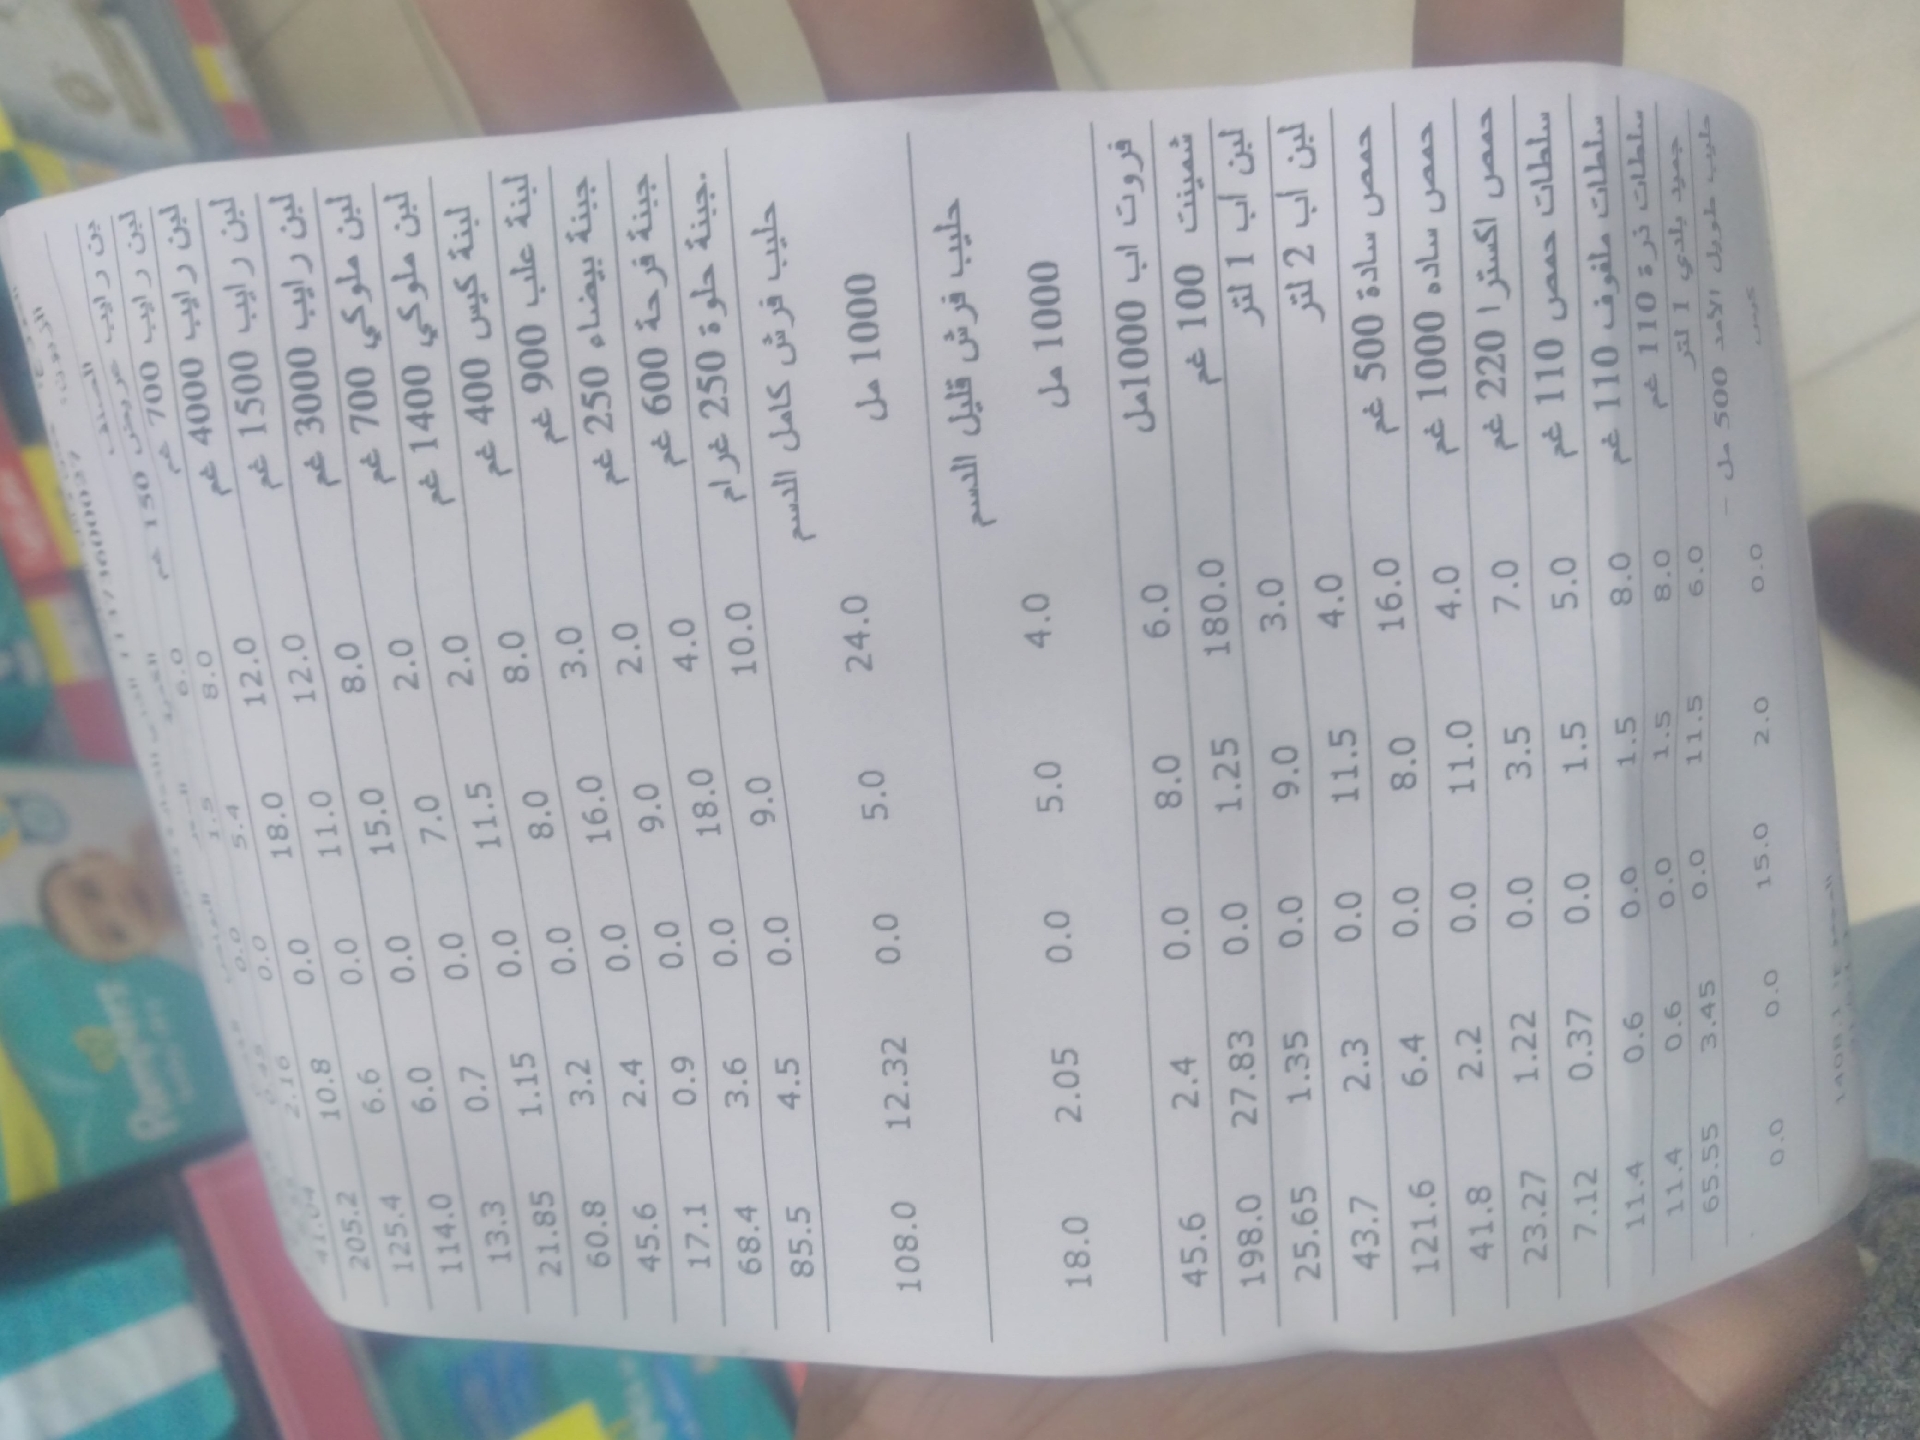 لبن رايب عريض 150 غم 6.0 1.5 0.0
لبن رايب 700 غم 8.0 5.4 0.0 2.16 41.04
لبن رايب 4000 غم 12.0 18.0 0.0 10.8 205.2
لبن رايب 1500 غم 12.0 11.0 0.0 6.6 125.4
لبن رايب 3000 غم 8.0 15.0 0.0 6.0 114.0
لبن ملوكي 700 غم 2.0 7.0 0.0 0.7 13.3
لبن ملوكي 1400 غم 2.0 11.5 0.0 1.15 21.85
لبنة كيس 400 غم 8.0 8.0 0.0 3.2 60.8
لبنة علب 900 غم 3.0 16.0 0.0 2.4 45.6
جبنة بيضاء 250 غم 2.0 9.0 0.0 0.9 17.1
جبنة فرحة 600 غم 4.0 18.0 0.0 3.6 68.4
جبنة حلوة 250 غرام. 10.0 9.0 0.0 4.5 85.5
حليب فرش كامل الدسم
1000 مل 24.0 5.0 0.0 12.32 108.0
حليب فرش قليل الدسم
1000 مل 4.0 5.0 0.0 2.05 18.0
فروت اب 1000مل 6.0 8.0 0.0 2.4 45.6
شمينت 100 غم 180.0 1.25 0.0 27.83 198.0
لبن اب 1 لتر 3.0 9.0 0.0 1.35 25.65
لبن اب 2 لتر 4.0 11.5 0.0 2.3 43.7
حمص سادة 500 غم 16.0 8.0 0.0 6.4 121.6
حمص ساده 1000 غم 4.0 11.0 0.0 2.2 41.8
حمص اكسترا 220 غم 7.0 3.5 0.0 1.22 23.27
سلطات حمص 110 غم 5.0 1.5 0.0 0.37 7.12
سلطات ملفوف 110 غم 8.0 1.5 0.0 0.6 11.4
سلطات ذرة 110 غم 8.0 1.5 0.0 0.6 11.4
جميد بلدي 1 لتر 6.0 11.5 0.0 3.45 65.55
حليب طويل الامد 500 مل -
كيس 0.0 2.0 15.0 0.0 0.0
Pampers